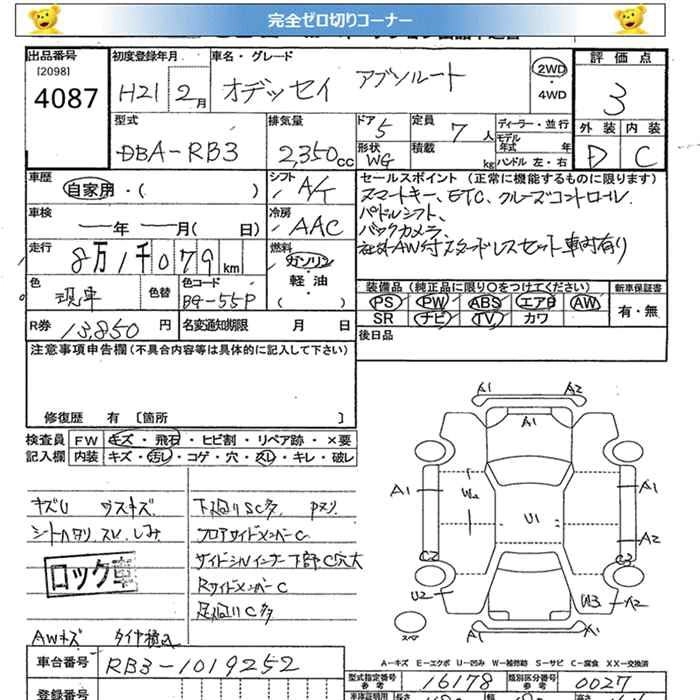 完全ゼロ切りコーナー
出品番号 初度登録年月 車名・グレード 評価点
[2098]
4087 H21 2月 オデッセイ アブソルート 2WD・4WD 3
型式 排気量 ドア 定員 ディーラー・並行 外装 内装
DBA-RB3 2,350cc 5 7人 モデル年式 年 D C
形状 WG 積載 kg ハンドル 左・右
車歴 自家用・( ) シフト A/T セールスポイント(正常に機能するものに限ります)
スマートキー、ETC、クルーズコントロール
車検 ー年ー月( 日) 冷房 AAC パドルシフト、
バックカメラ、
走行 8万1千079km 燃料 ガソリン・軽油・( ) 社外AW付スタッドレスセット車内有り
色 現車 色替 色コード BG-55P 装備品(純正品に限り○をつけてください) 新車保証書
PS PW ABS エアB AW 有・無
SR ナビ TV カワ
R券 13,850円 名変通知期限 月 日 後日品
注意事項申告欄(不具合内容等は具体的に記入して下さい)
修復歴 有〔箇所 〕
検査員 FW キズ・飛石・ヒビ割・リペア跡・×要
記入欄 内装 キズ・汚レ・コゲ・穴・スレ・キレ・破レ
キズU ウスキズ
シートヘタリ、スレ、しみ
ロック車
AWキズ タイヤ積込
下廻りSC多 Pヌリ
フロアサイドメンバーC
サイドシルインナー下部C穴大
RサイドメンバーC
足廻りC多
A1 A2
A1
A1 W2 A1
U1
A2
C2 C3
U2 W3 A2
スペア A1 A1
A-キズ E-エクボ U-凹み W-補修跡 S-サビ C-腐食 XX-交換済
車台番号 RB3-1019252
型式指定番号 参考 16178 類別区分番号 参考 0027
登録番号